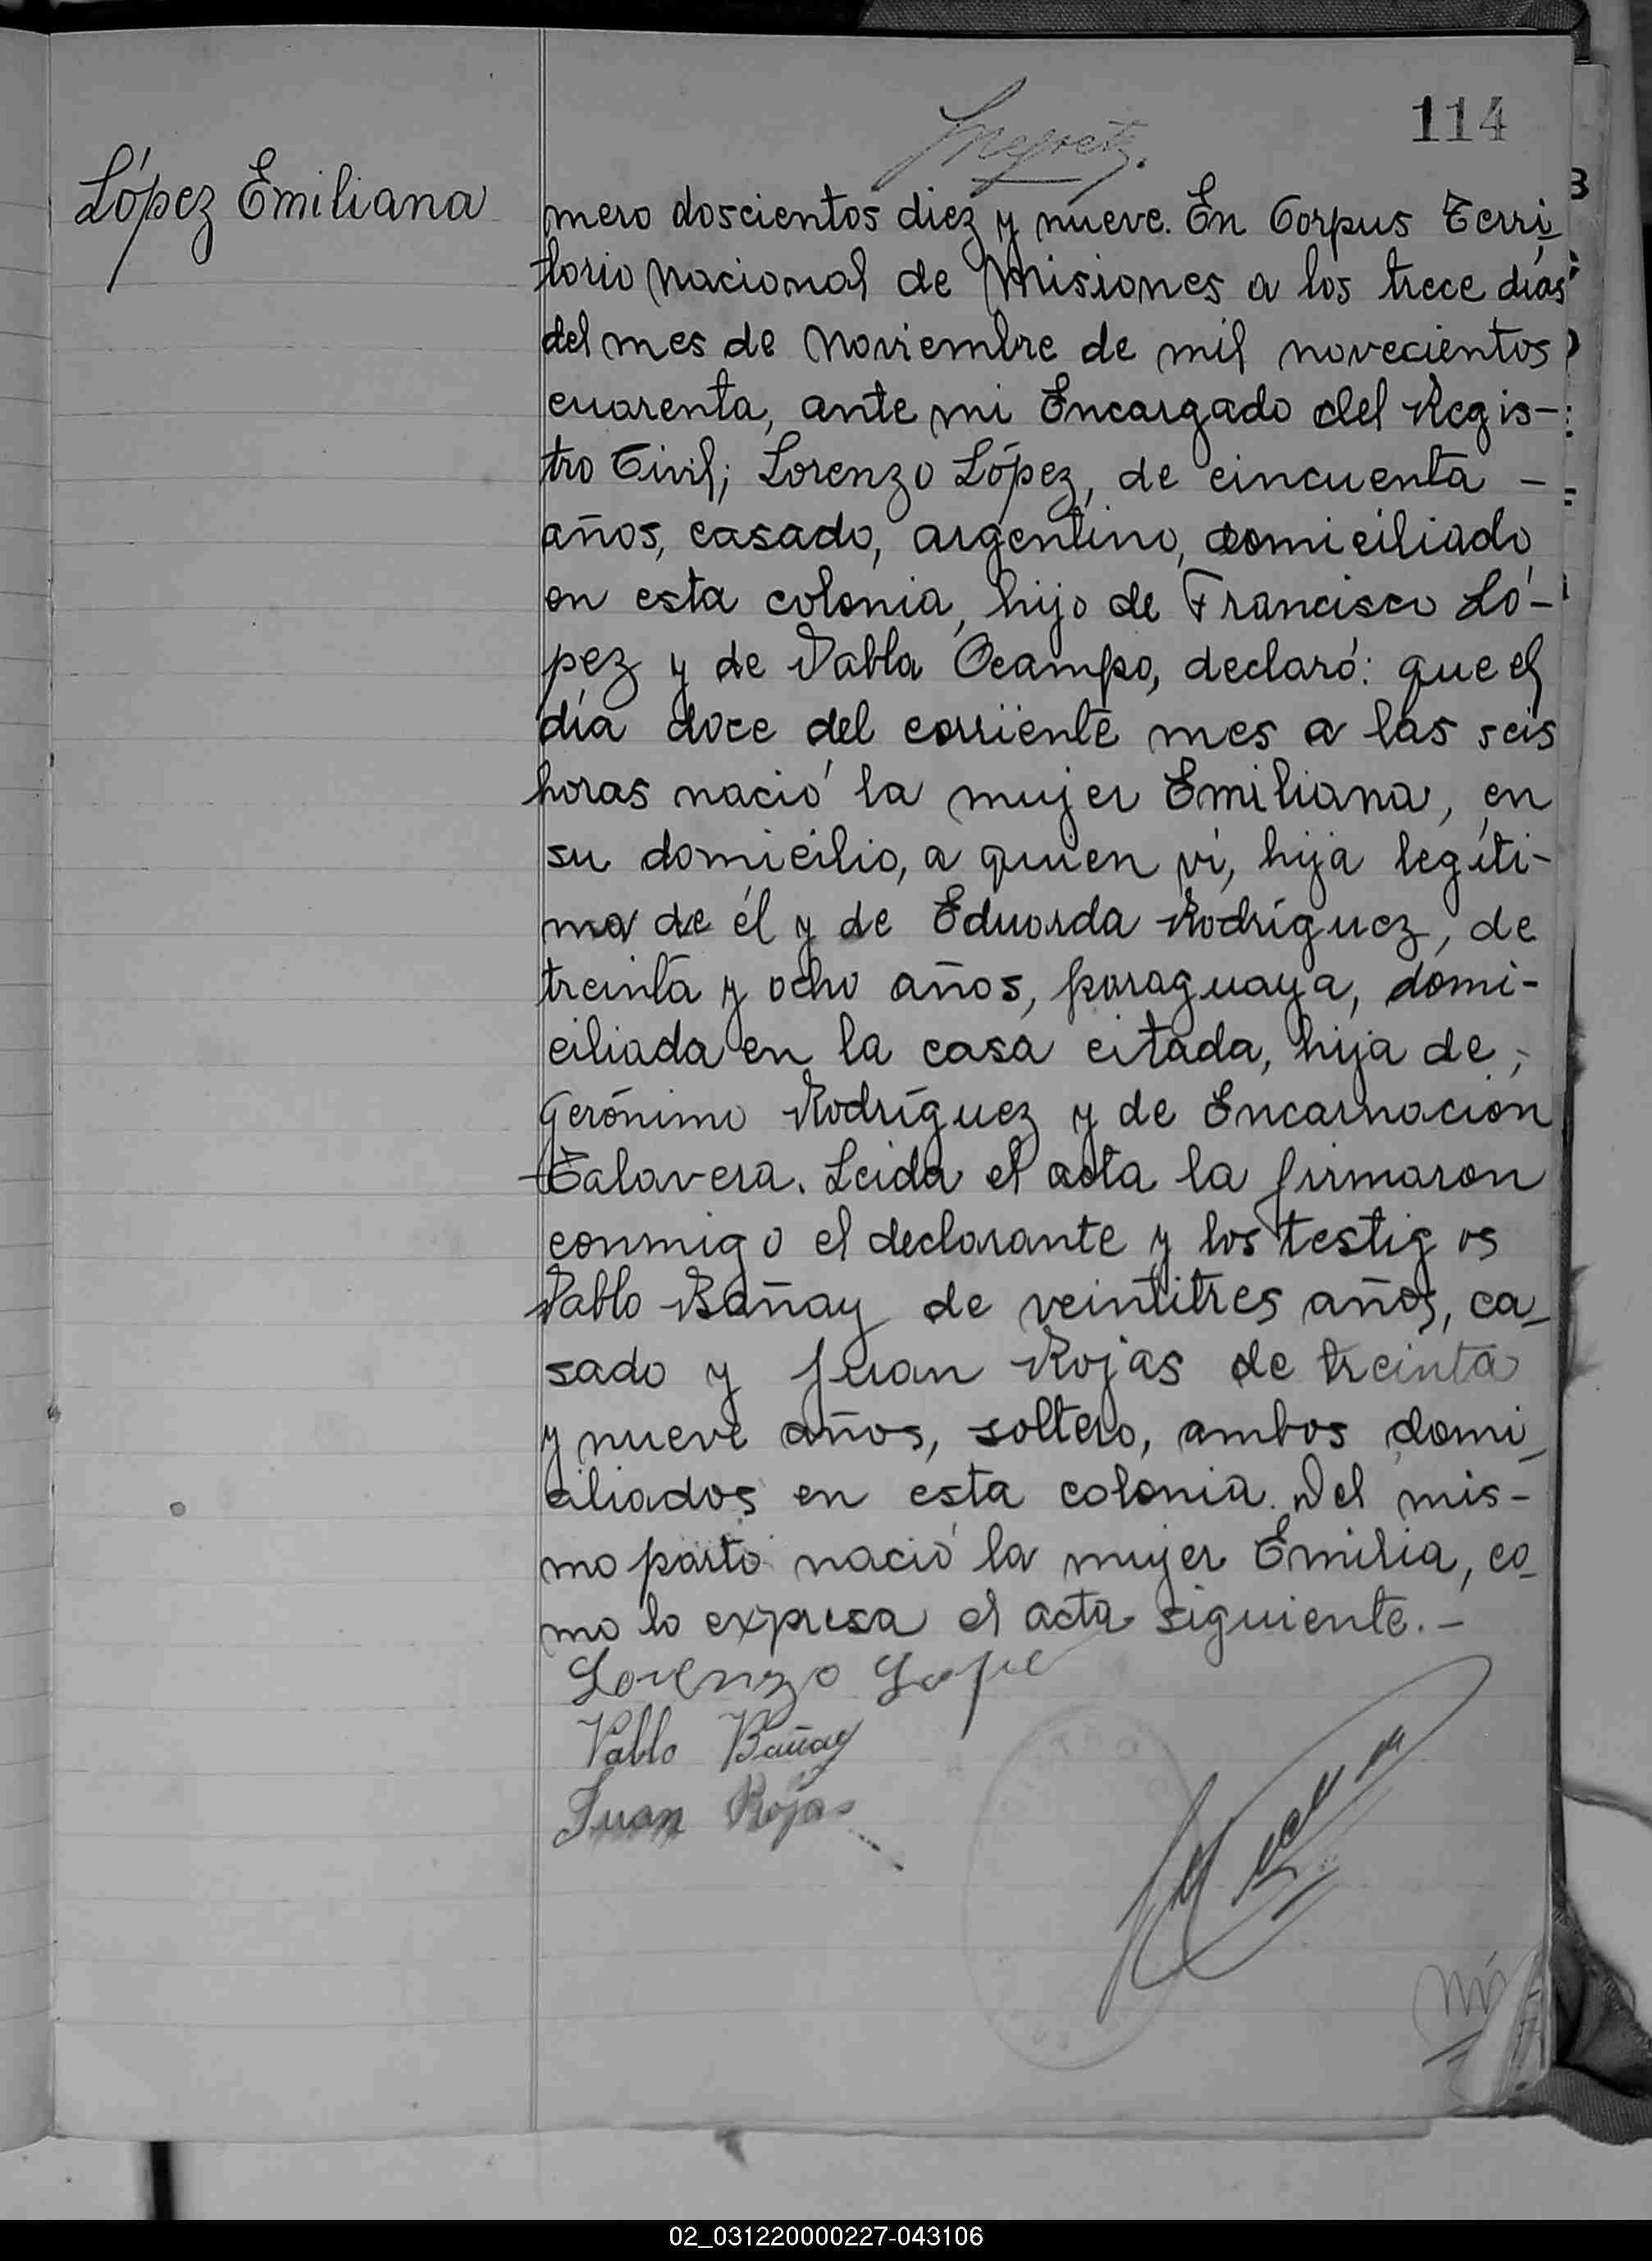 114
López Emiliana
mero doscientos diez y nueve. En Corpus Terri_
torio Nacional de Misiones a los trece días
del mes de Noviembre de mil novecientos
cuarenta, ante mi Encargado del Regis-
tro Civil; Lorenzo López, de cincuenta -
años, casado, argentino, domiciliado
en esta colonia, hijo de Francisco Ló-
pez y de Pabla Ocampo, declaró: que el
día doce del corriente mes a las seis
horas nació la mujer Emiliana, en
su domicilio, a quien ví, hija legíti-
ma de él y de Eduarda Rodríguez, de
treinta y ocho años, paraguaya, domi-
ciliada en la casa citada, hija de,
Gerónimo Rodríguez y de Encarnación
Talavera. Leida el acta la firmaron
conmigo el declarante y los testigos
Pablo Bañay de veintitres años, ca_
sado y Juan Rojas de treinta
y nueve años, soltero, ambos domi_
ciliados en esta colonia. Del mis-
mo parto nació la mujer Emilia, co_
mo lo expresa el acta siguiente.-
Lorenzo Lope
Pablo Bañay
Juan Rojas
02_031220000227-043106